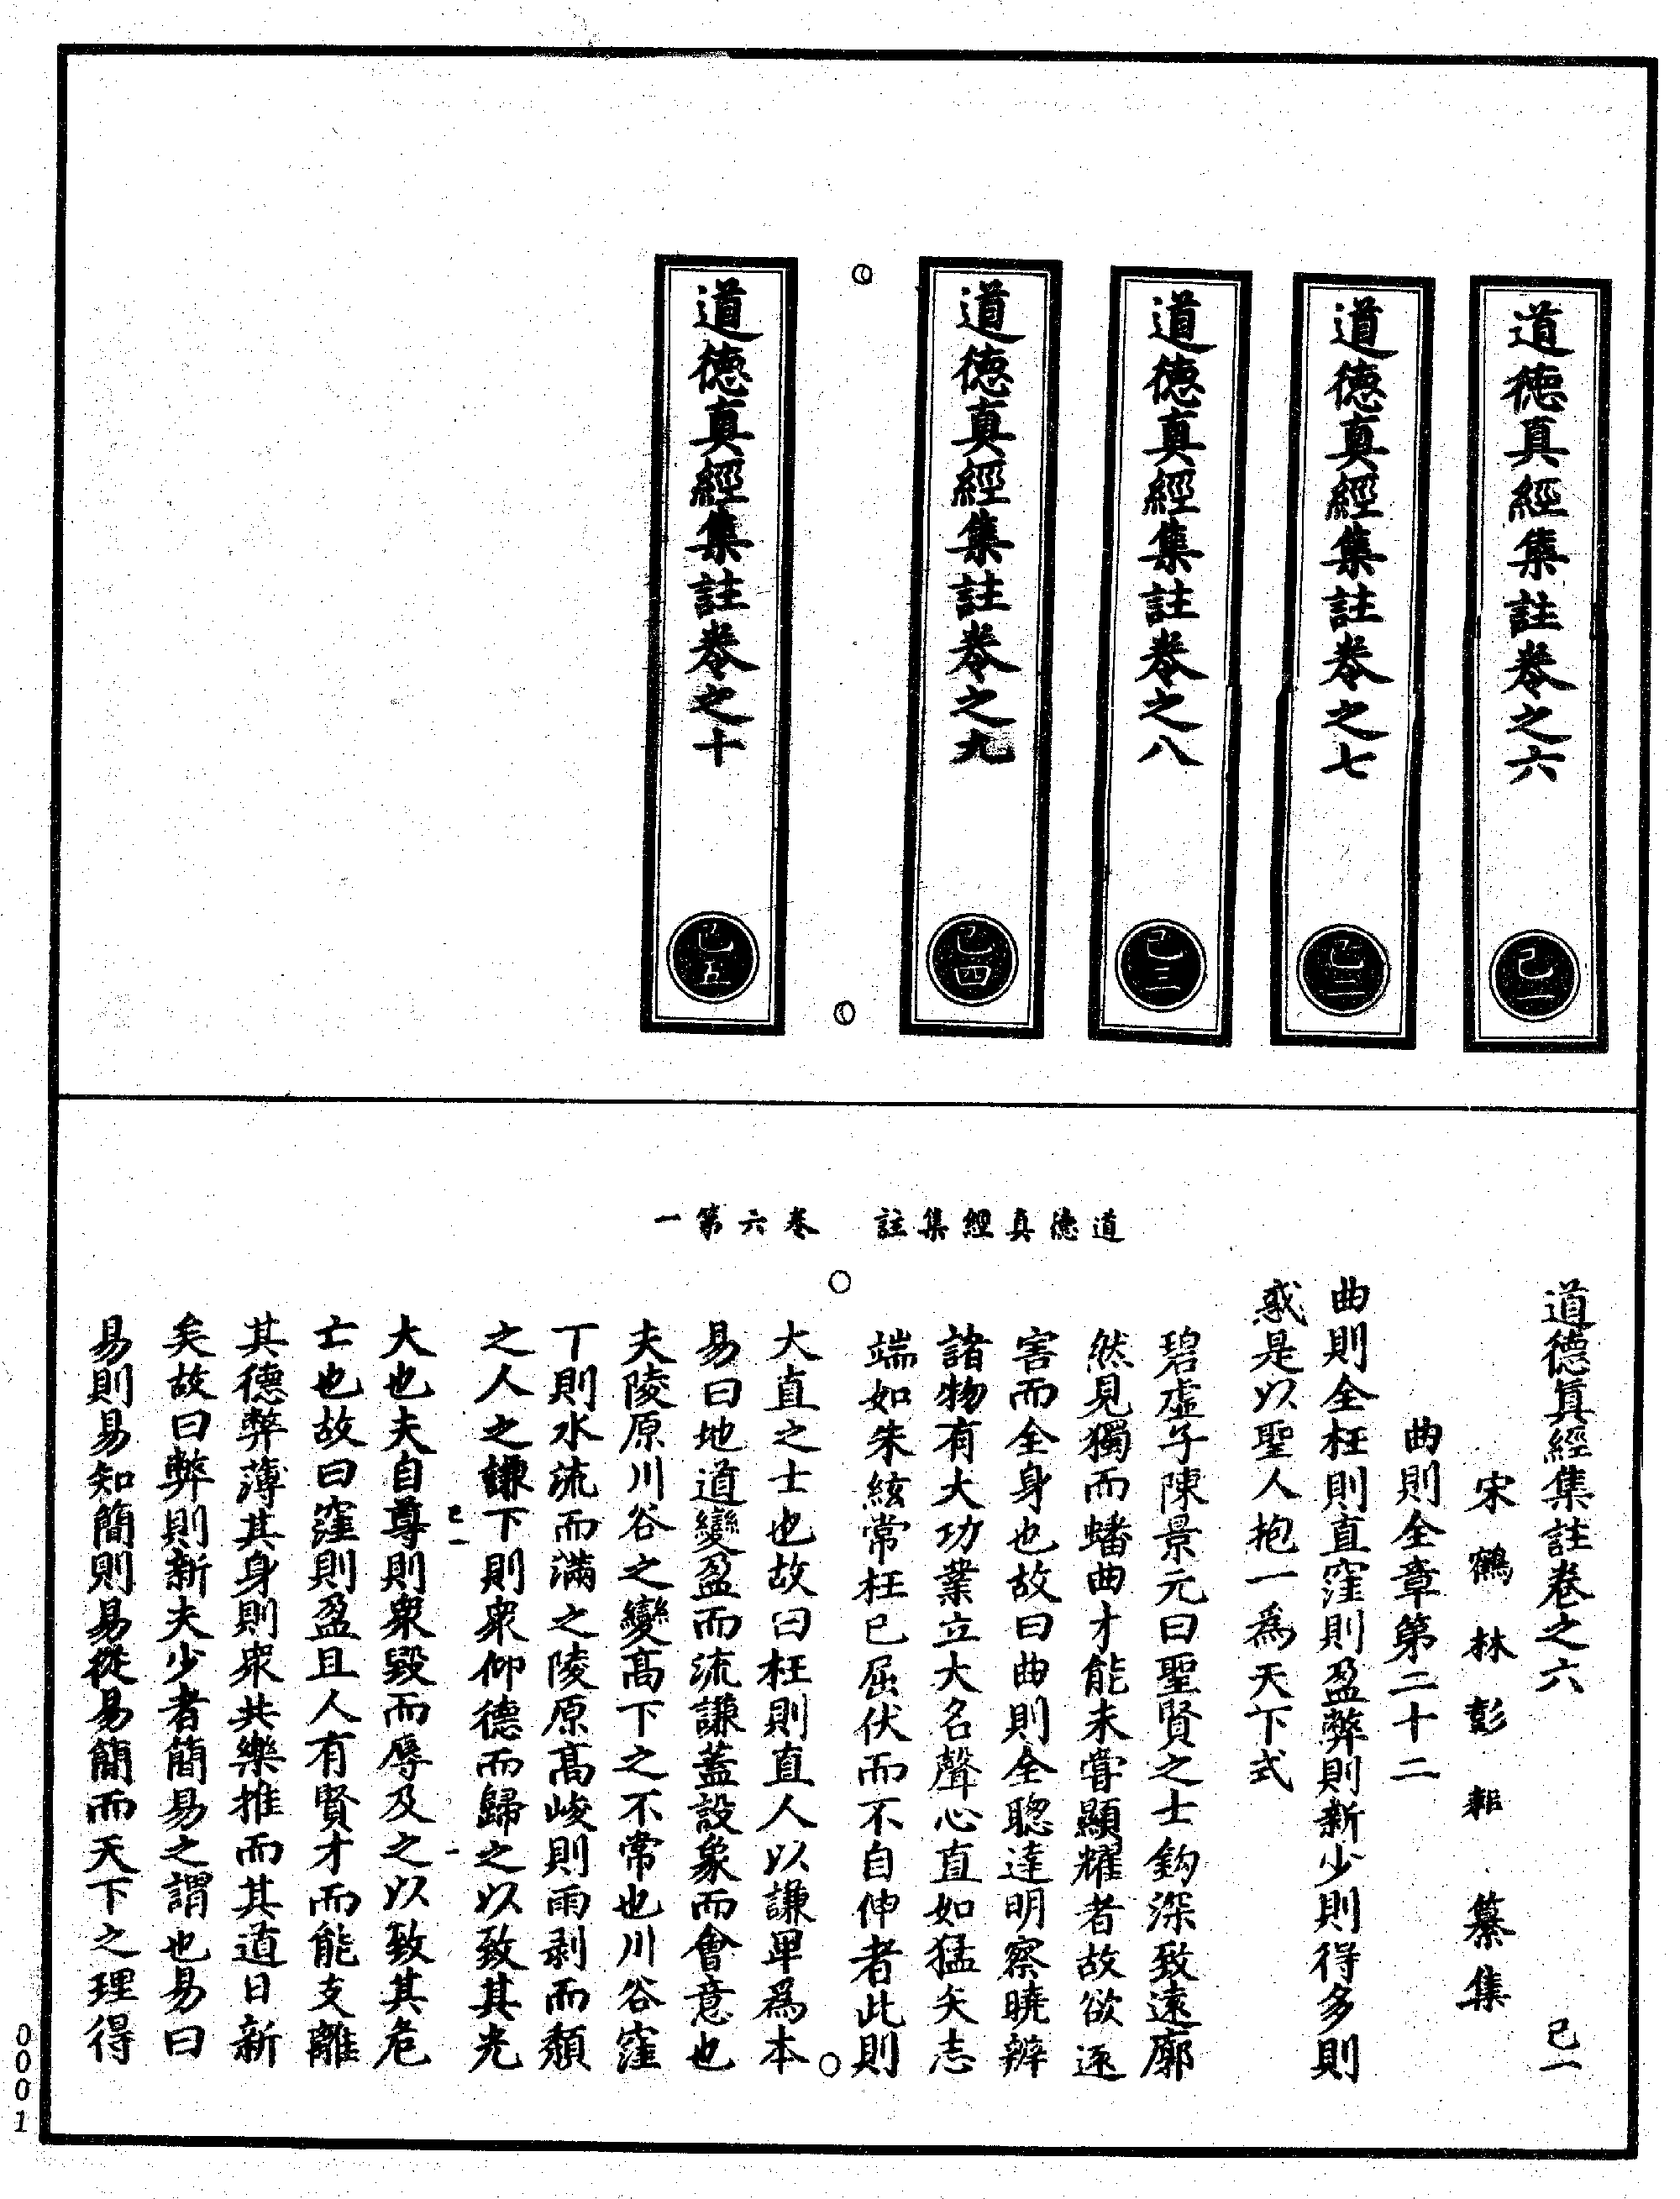 道德真經集註卷之六
己一
道德真經集註卷之七
己二
道德真經集註卷之八
己三
道德真經集註卷之九
己四
道德真經集註卷之十
己五
道德真經集註　卷六第一
道德真經集註卷之六　己一
宋鶴林彭耜纂集
曲則全章第二十二
曲則全枉則直窪則盈弊則新少則得多則
惑是以聖人抱一爲天下式
碧虛子陳景元曰聖賢之士鈎深致遠廓
然見獨而蟠曲才能未嘗顯耀者故欲逐
害而全身也故曰曲則全聰達明察曉辨
諸物有大功業立大名聲心直如猛矢志
端如朱絃常枉己屈伏而不自伸者此則
大直之士也故曰枉則直人以謙畢爲本
易曰地道變盈而流謙蓋設象而會意也
夫陵原川谷之變高下之不常也川谷窪
下則水流而滿之陵原高峻則雨剥而頹
之人之謙下則衆仰德而歸之以致其光
己一　一
大也夫自尊則衆毀而辱及之以致其危
亡也故曰窪則盈且人有賢才而能支離
其德弊薄其身則衆共樂推而其道日新
矣故曰弊則新夫少者簡易之謂也易曰
易則易知簡則易從易簡而天下之理得
0001